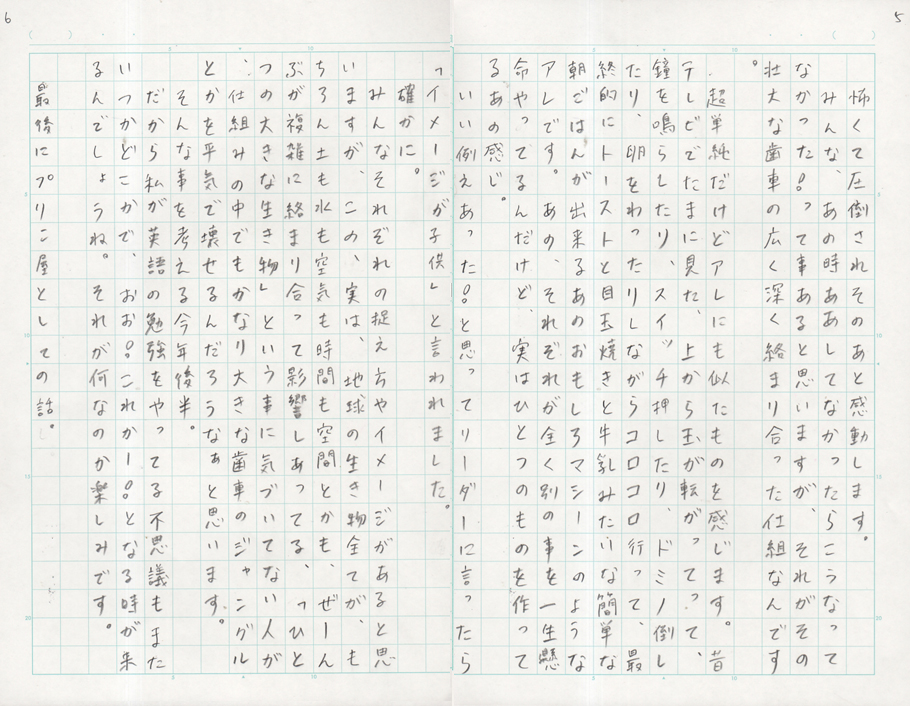 5
怖くて圧倒されそのあと感動します。
みんな、あの時ああしてなかったらこうなって
なかった!って事あると思いますが、それがその
壮大な歯車の広く深く絡まり合った仕組なんです
。
超単純だけどアレにも似たものを感じます。昔
テレビでたまに見た、上から玉が転がってって、
鐘を鳴らしたり、スイッチ押したり、ドミノ倒し
たり、明をわったりしながらコロコロ行って、最
終的にトーストと目玉焼きと牛乳みたいな簡単な
朝ごはんが出来るあのおもしろマシーンのような
アレです。あのそれぞれが全く別の事を一生懸
命やってるんだけど、実はひとつのものを作って
るあの感じ。
いい例えあった!と思ってリーダーに言ったら
6
「イメージが子供」と言われました。
確かに。
みんなそれぞれの捉え方やイメージがあると思
いますが、この、実は、地球の生き物全てが、も
ちろん土も水も空気も時間も空間とかも、ぜーん
ぶが複雑に絡まり合って影響しあってる、「ひと
つの大きな生き物」という事に気づいてない人が
、仕組みの中でもかなり大きな歯車のジャングル
とかを平気で壊せるんだろうなぁと思います。
そんな事を考える今年後半。
だから私が英語の勉強をやってる不思議もまた
いつかどこかで、おお!これかー!となる時が来
るんでしょうね。それが何なのか楽しみです。
最後にプリこ屋としての話。